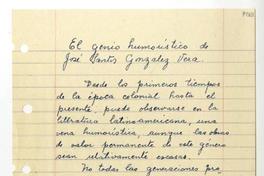 El genio humorístico de
José Santos González Vera.
Desde los primeros tiempos
de la época colonial hasta el
presente, puede observarse en la
literatura latinoamericana, una
vena humorística, aunque las obras
de valor permanente de este género
sean relativamente escasas.
No todas las generaciones pro